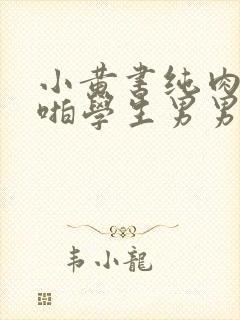 小黄書纯肉
啪學生男男
韦小龍